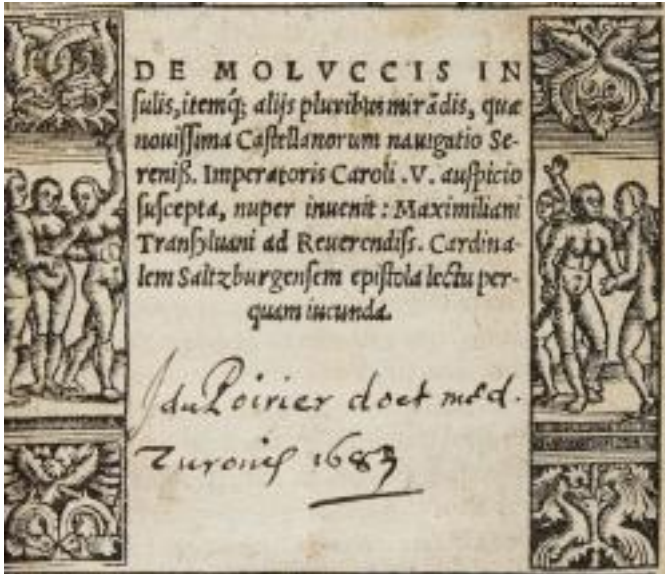 DE MOLVCCIS IN
sulis, itemq́; alijs pluribus mirādis, quæ
nouissima Castellanorum nauigatio Se-
reniss. Imperatoris Caroli .V. auspicio
suscepta, nuper inuenit: Maximiliani
Transyluani ad Reuerendiss. Cardina-
lem Saltzburgensem epistola lectu per-
quam iucunda.
J du Poirier doct med.
Turonis 1683